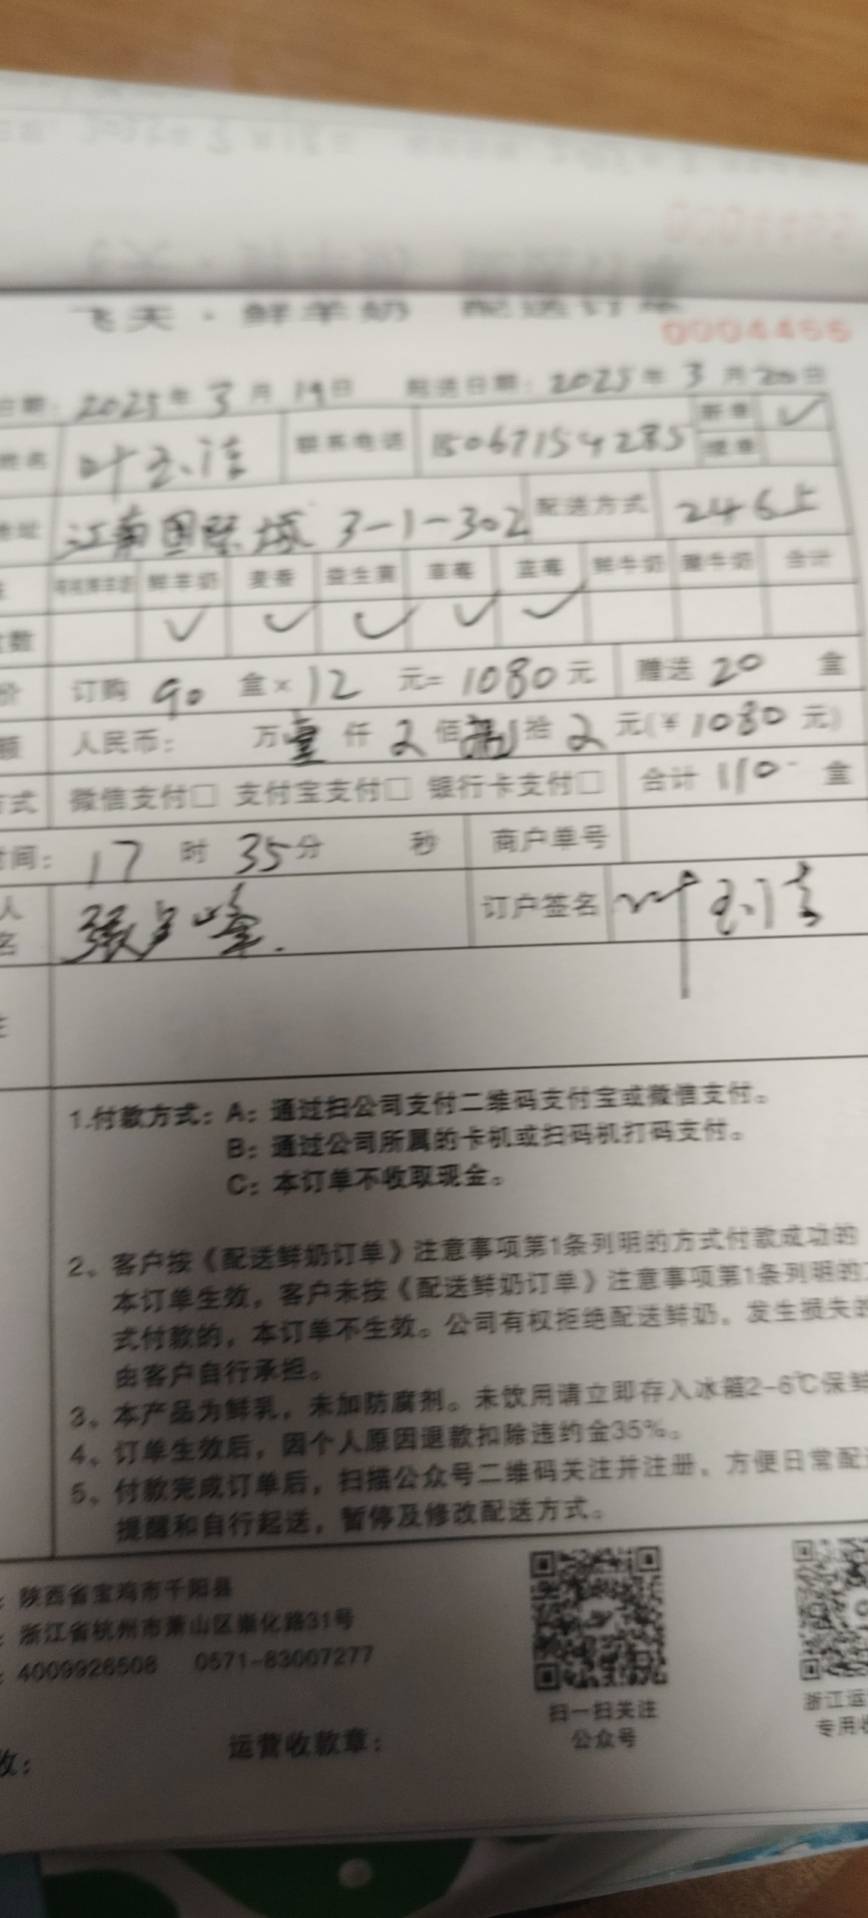 飞天·鲜羊奶 配送订单
0004466
日期：2025年3月19日 起送日期：2025年3月20日
姓名 叶玉洁 联系电话 15067154285 新单 ✓
续单
地址 江南国际城 3-1-302 配送方式 246上
鲜羊奶 麦香 益生菌 草莓 蓝莓 鲜牛奶 酸牛奶 合计
数 ✓ ✓ ✓ ✓ ✓
价 订购 90 盒× 12 元= 1080 元 赠送 20 盒
额 人民币： 万 壹 仟 2 佰 捌 拾 2 元(￥1080 元)
方式 微信支付□ 支付宝支付□ 银行卡支付□ 合计 110 盒
时间： 17 时 35 分 秒 商户单号
人
名 张 峰 订户签名 叶玉洁
1.付款方式：A：通过扫公司支付二维码支付宝或微信支付。
B：通过公司所属的卡机或扫码机打码支付。
C：本订单不收取现金。
2、客户按《配送鲜奶订单》注意事项第1条列明的方式付款成功的
本订单生效，客户未按《配送鲜奶订单》注意事项第1条列明的
式付款的，本订单不生效。公司有权拒绝配送鲜奶，发生损失
由客户自行承担。
3、本产品为鲜乳，未加防腐剂。未饮用请立即存入冰箱2-6℃保鲜
4、订单生效后，因个人原因退款扣除违约金35%。
5、付款完成订单后，扫描公众号二维码关注并注册，方便日常配
提醒和自行起送，暂停及修改配送方式。
：陕西省宝鸡市千阳县
：浙江省杭州市萧山区崇化路31号
：4009926508 0571-83007277
扫一扫关注
公众号
浙江运
专用收
收： 运营收款章：